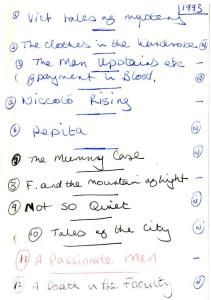 1993
① Vict tales of mystery -
② The clothes in the wardrobe Ⓝ
③ The Man Upstairs etc -
④ payment in Blood. Ⓝ
⑤ Niccolo Rising -
⑥ Pepita Ⓝ
⑦ The Mummy Case -
⑧ F. and the Mountain of light -
⑨ Not So Quiet Ⓝ
⑩ Tales of the City Ⓝ
11 A Passionate Man -
12 A Death in the Faculty Ⓝ